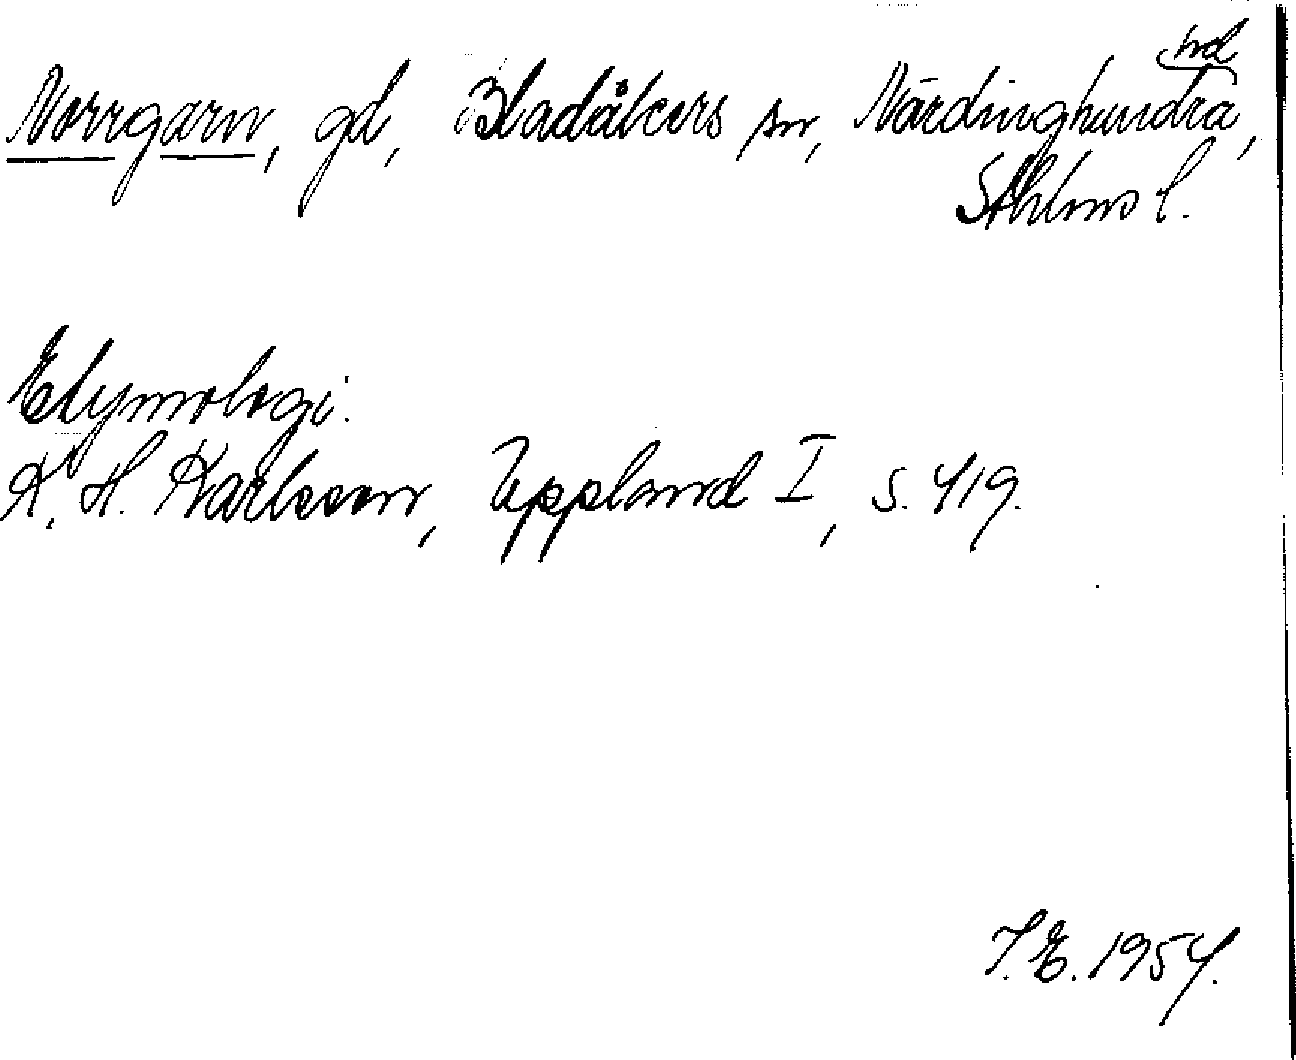 Norrgarn, gd, Bladåkers sn, Närdinghundra hd,
Sthlms l.
Etymologi:
K. H. Karlsson, Uppland I, s. 419.
T.E. 1954.